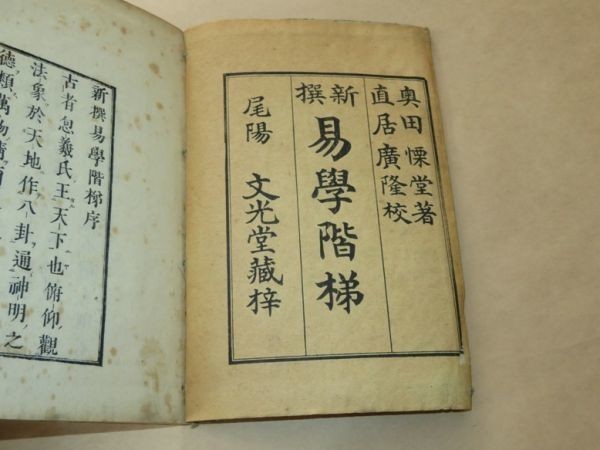 奥田慄堂著
直居廣隆校
新撰
易學階梯
尾陽 文光堂藏梓
新撰易學階梯序
古者包羲氏王天下也俯仰觀
法象於天地作八卦通神明之
德類萬物情